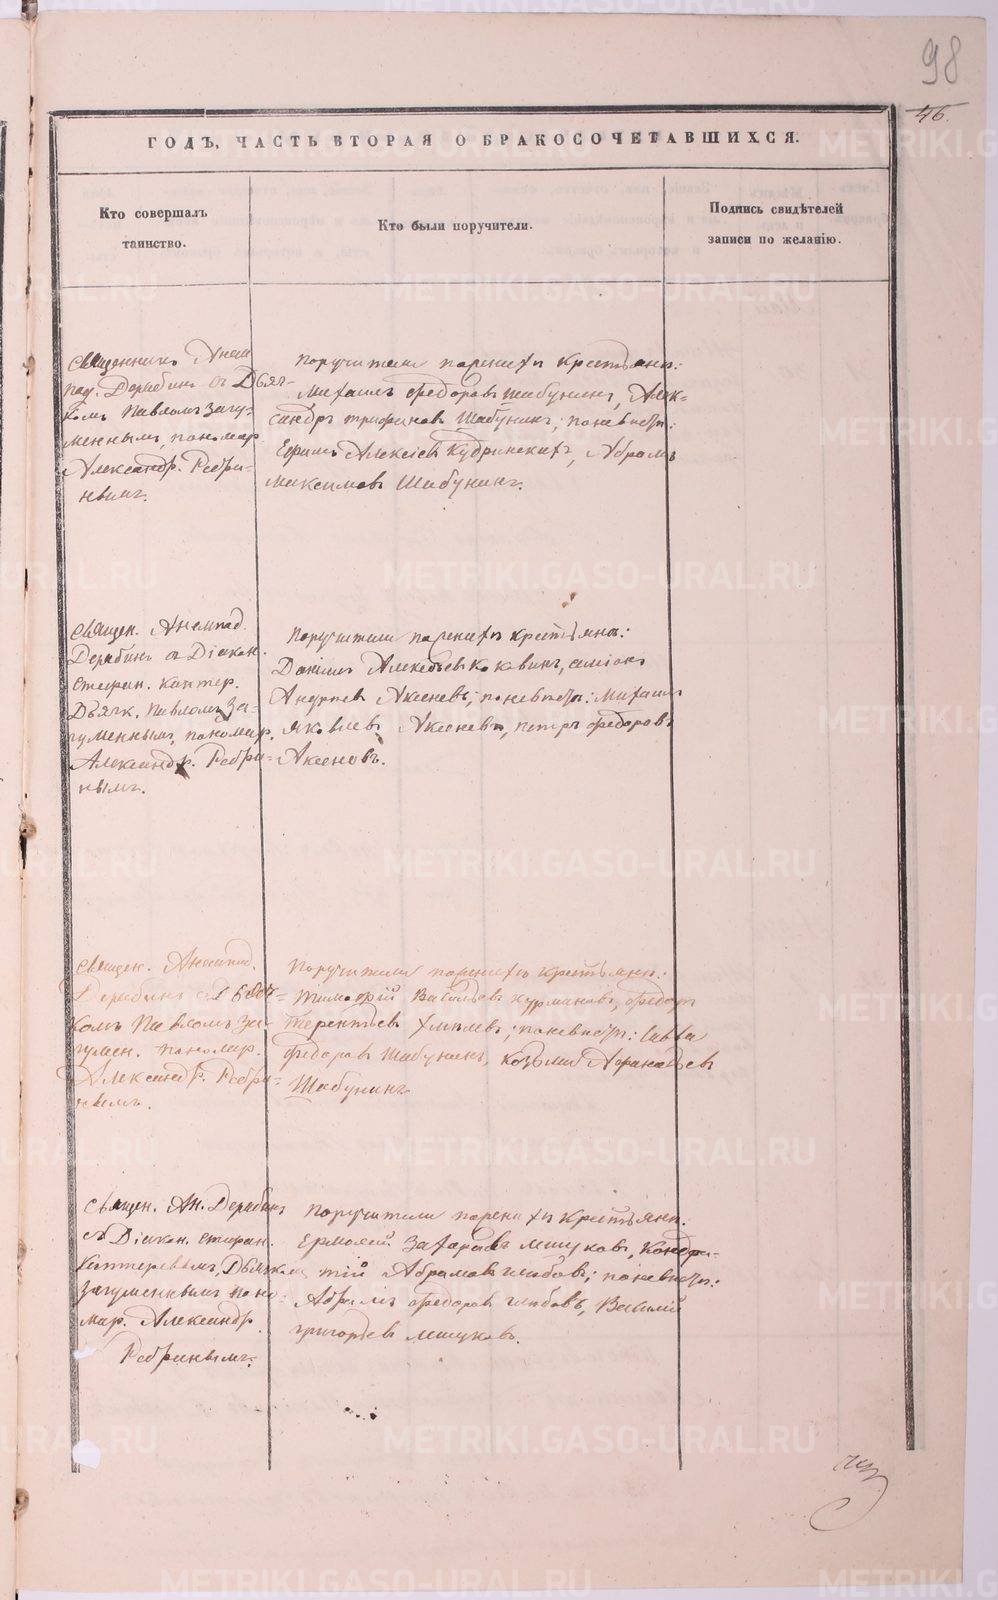 98
46.
ГОДЪ, ЧАСТЬ ВТОРАЯ О БРАКОСОЧЕТАВШИХСЯ.
Кто совершалъ
таинство.
Кто были поручители.
Подпись свидѣтелей
записи по желанію.
Священникъ
Дерябинъ съ Дьяч-
комъ Павломъ Загу-
меннымъ, пономар.
Александр. Ребри-
нымъ.
Поручители по женихѣ крестьяне:
Михаилъ Ѳедоровъ Шабунинъ, Алек-
сандръ Трифоновъ Шабунинъ; по невѣстѣ:
Ефимъ Алексѣевъ Кудринскихъ, Абрамъ
Максимовъ Шабунинъ.
Священ.
Дерябинъ съ Діакон.
Стефан.
Дьячк. Павломъ За-
гуменнымъ, пономар.
Александр. Ребри-
нымъ.
Поручители по женихѣ крестьяне:
Данiилъ Алексѣевъ Коковинъ, Симіонъ
Андреевъ Аксеновъ; по невѣстѣ: Михаилъ
Яковлевъ Аксеновъ, Петръ Ѳедоровъ
Аксеновъ.
Священ.
Дерябинъ съ Дьяч-
комъ Павломъ За-
гумен. пономар.
Александр. Ребри-
нымъ.
Поручители по женихѣ крестьяне:
Тимоѳей Васильевъ Курмановъ, Ѳедоръ
Терентьевъ; по невѣстѣ: Савва
Ѳедоровъ Шабунинъ, Козьма Афанасьевъ
Шабунинъ
Священ. Ан. Дерябинъ
съ Діакон. Стефан.
Дьячком
Загуменнымъ поно-
мар. Александр.
Ребринымъ.
Поручители по женихѣ крестьяне:
Ермолай Захаровъ Мишуковъ, Кондра-
тій Абрамовъ Глибовъ; по невѣстѣ:
Абрамъ Ѳедоровъ Глибовъ, Василій
Григорьевъ Мишуковъ.
METRIKI.GASO-URAL.RU